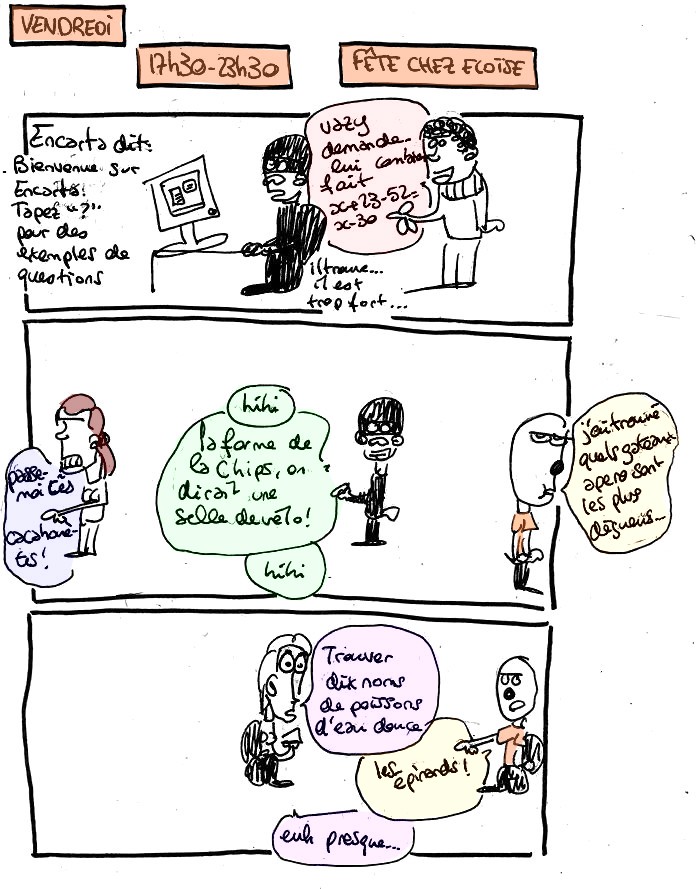 VENDREDI
17h30-23h30
FÊTE CHEZ ELOÏSE
Encarta dit:
Bienvenue sur
Encarta.
Tapez "?"
pour des
exemples de
questions
vazy
demande..
lui combien
fait
x+23-52=
x-30
il trouve...
il est
trop fort...
hihi
la forme de
la chips, on
dirait une
selle de vélo!
hihi
passe-
moi tes
cacahouè-
tes!
j'ai trouvé
quels gateaux
apéro sont
les plus
dégueus...
Trouver
dix noms
de poissons
d'eau douce
les
épinards!
euh presque...